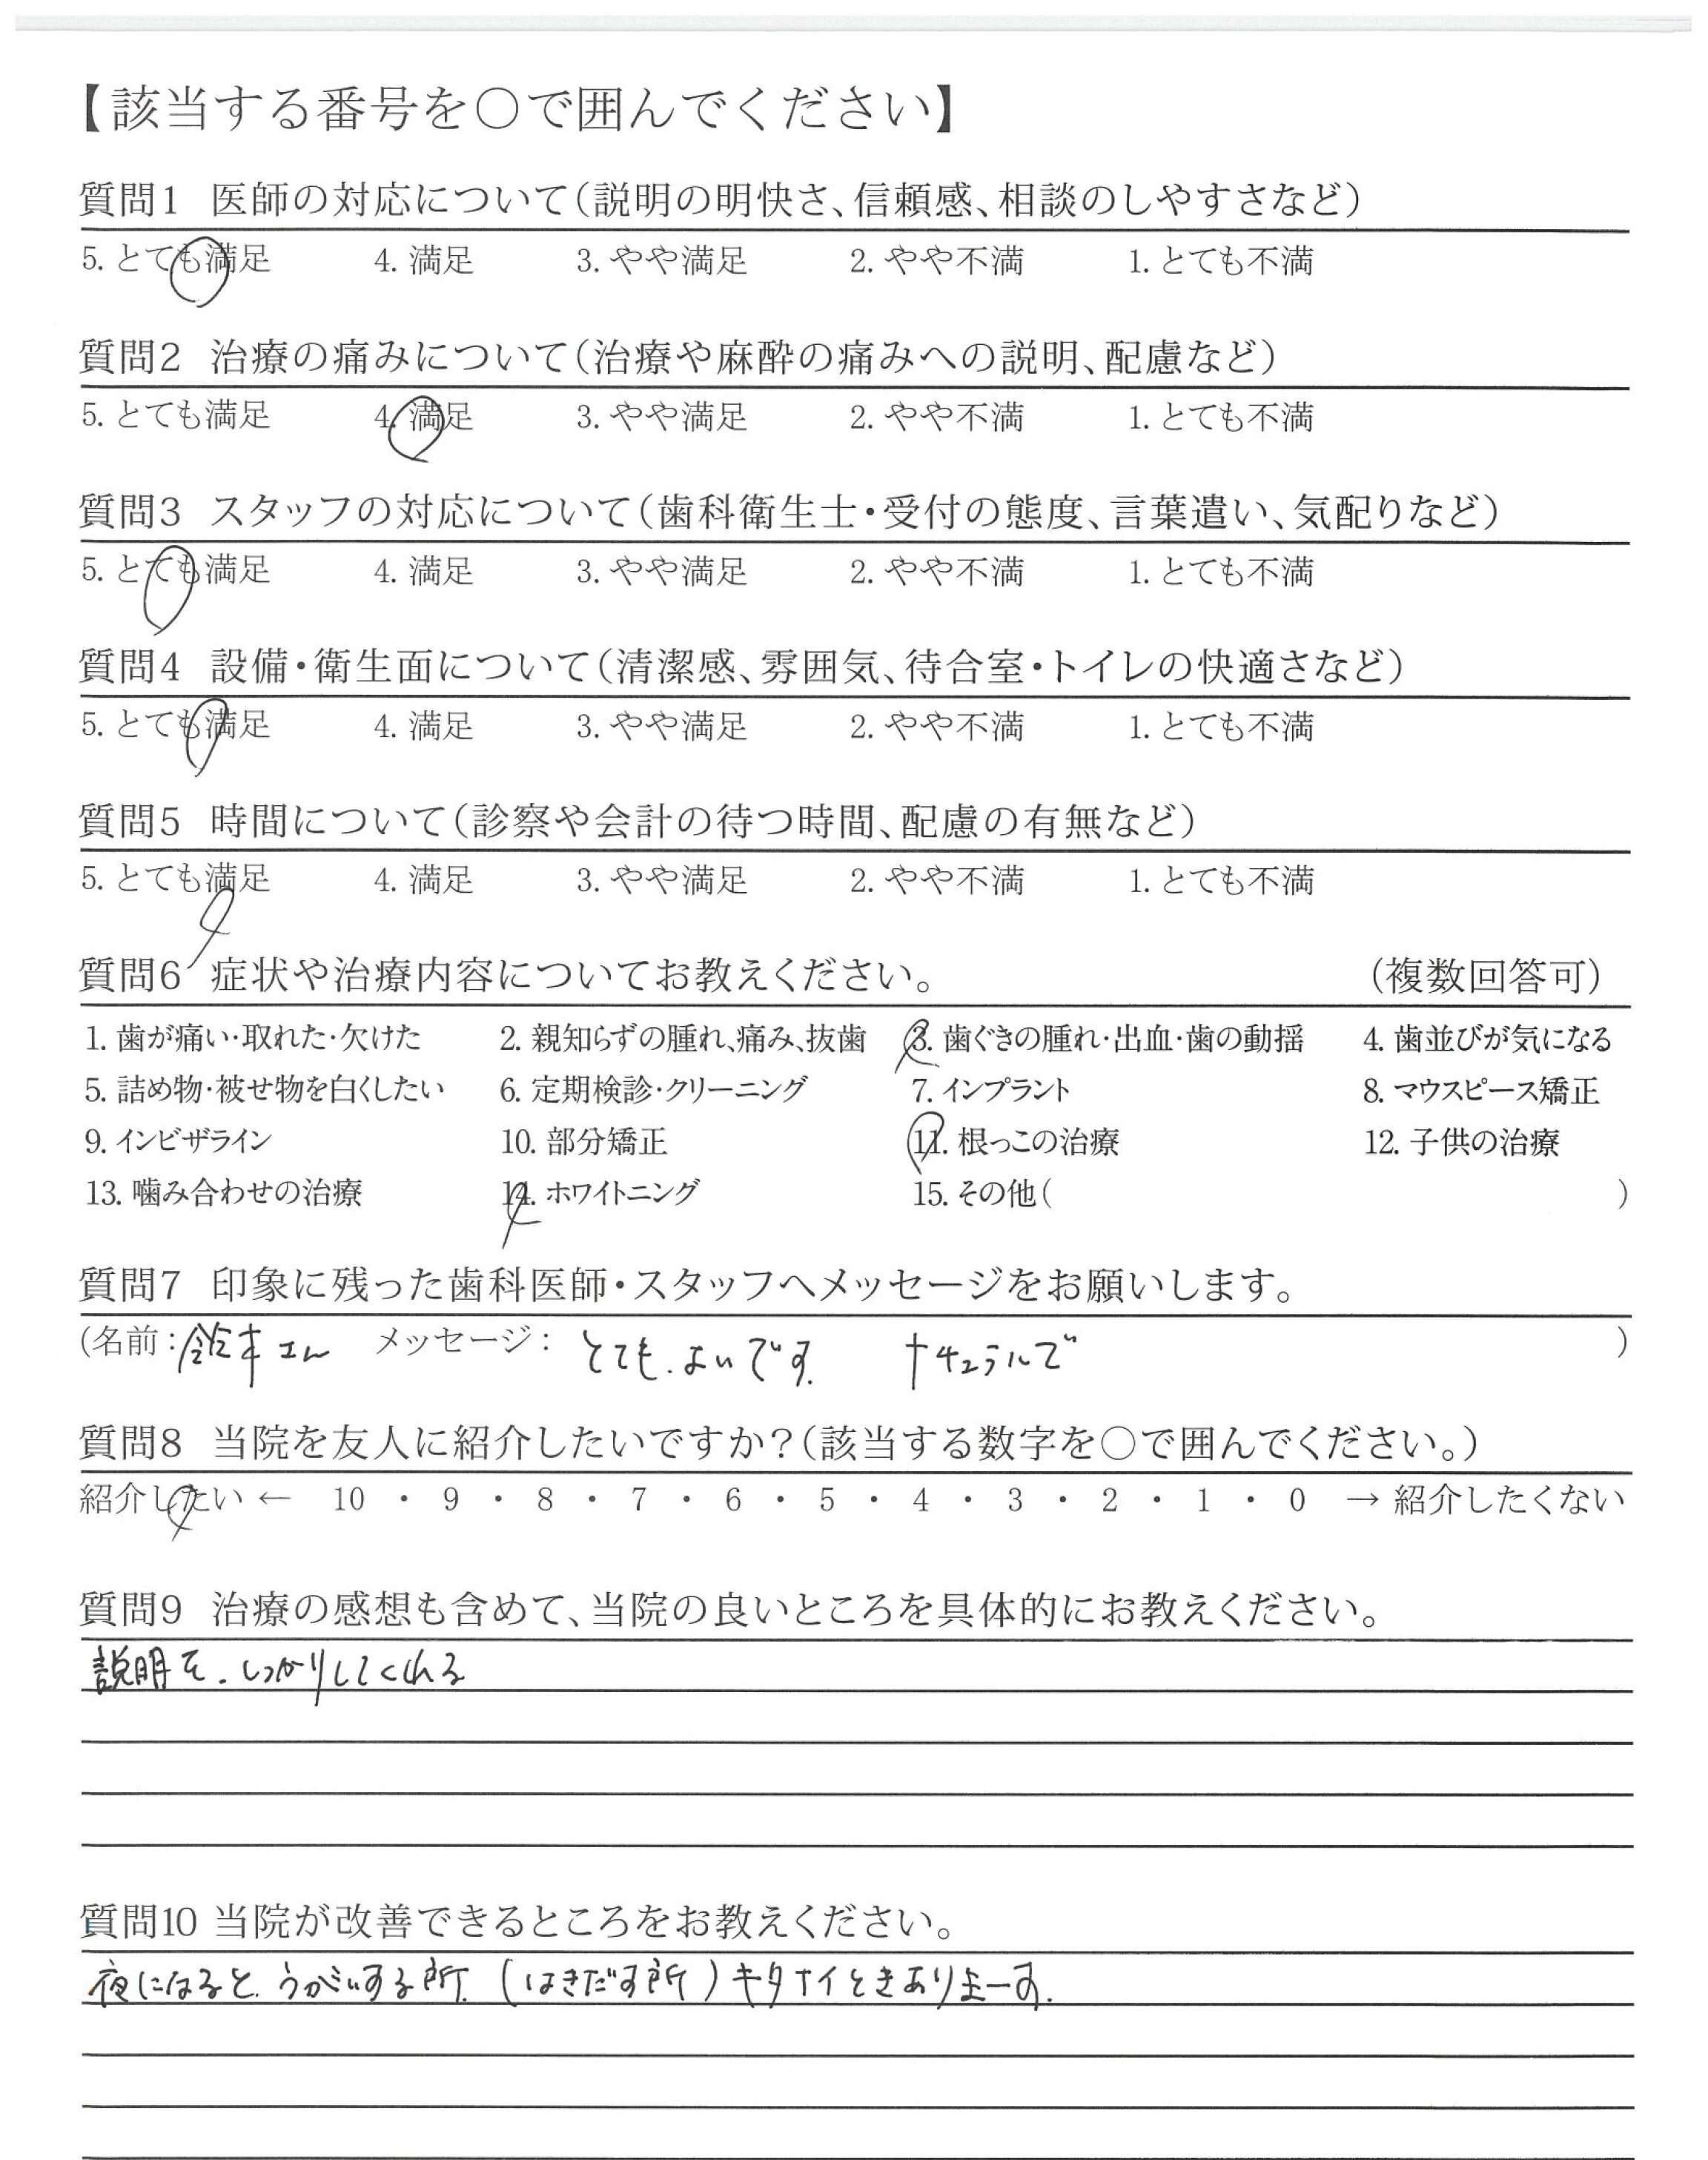 【該当する番号を○で囲んでください】
質問1 医師の対応について(説明の明快さ、信頼感、相談のしやすさなど)
5. とても満足 4. 満足 3. やや満足 2. やや不満 1. とても不満
質問2 治療の痛みについて(治療や麻酔の痛みへの説明、配慮など)
5. とても満足 4. 満足 3. やや満足 2. やや不満 1. とても不満
質問3 スタッフの対応について(歯科衛生士・受付の態度、言葉遣い、気配りなど)
5. とても満足 4. 満足 3. やや満足 2. やや不満 1. とても不満
質問4 設備・衛生面について(清潔感、雰囲気、待合室・トイレの快適さなど)
5. とても満足 4. 満足 3. やや満足 2. やや不満 1. とても不満
質問5 時間について(診察や会計の待つ時間、配慮の有無など)
5. とても満足 4. 満足 3. やや満足 2. やや不満 1. とても不満
質問6 症状や治療内容についてお教えください。 (複数回答可)
1. 歯が痛い・取れた・欠けた 2. 親知らずの腫れ、痛み、抜歯 3. 歯ぐきの腫れ・出血・歯の動揺 4. 歯並びが気になる
5. 詰め物・被せ物を白くしたい 6. 定期検診・クリーニング 7. インプラント 8. マウスピース矯正
9. インビザライン 10. 部分矯正 11. 根っこの治療 12. 子供の治療
13. 噛み合わせの治療 14. ホワイトニング 15. その他( )
質問7 印象に残った歯科医師・スタッフへメッセージをお願いします。
(名前:鈴木さん メッセージ: とても.よいです. ナチュラルで )
質問8 当院を友人に紹介したいですか?(該当する数字を○で囲んでください。)
紹介したい ← 10 ・ 9 ・ 8 ・ 7 ・ 6 ・ 5 ・ 4 ・ 3 ・ 2 ・ 1 ・ 0 → 紹介したくない
質問9 治療の感想も含めて、当院の良いところを具体的にお教えください。
説明を.しっかりしてくれる
質問10 当院が改善できるところをお教えください。
夜になると.うがいする所.(はきだす所)キタナイときありまーす.